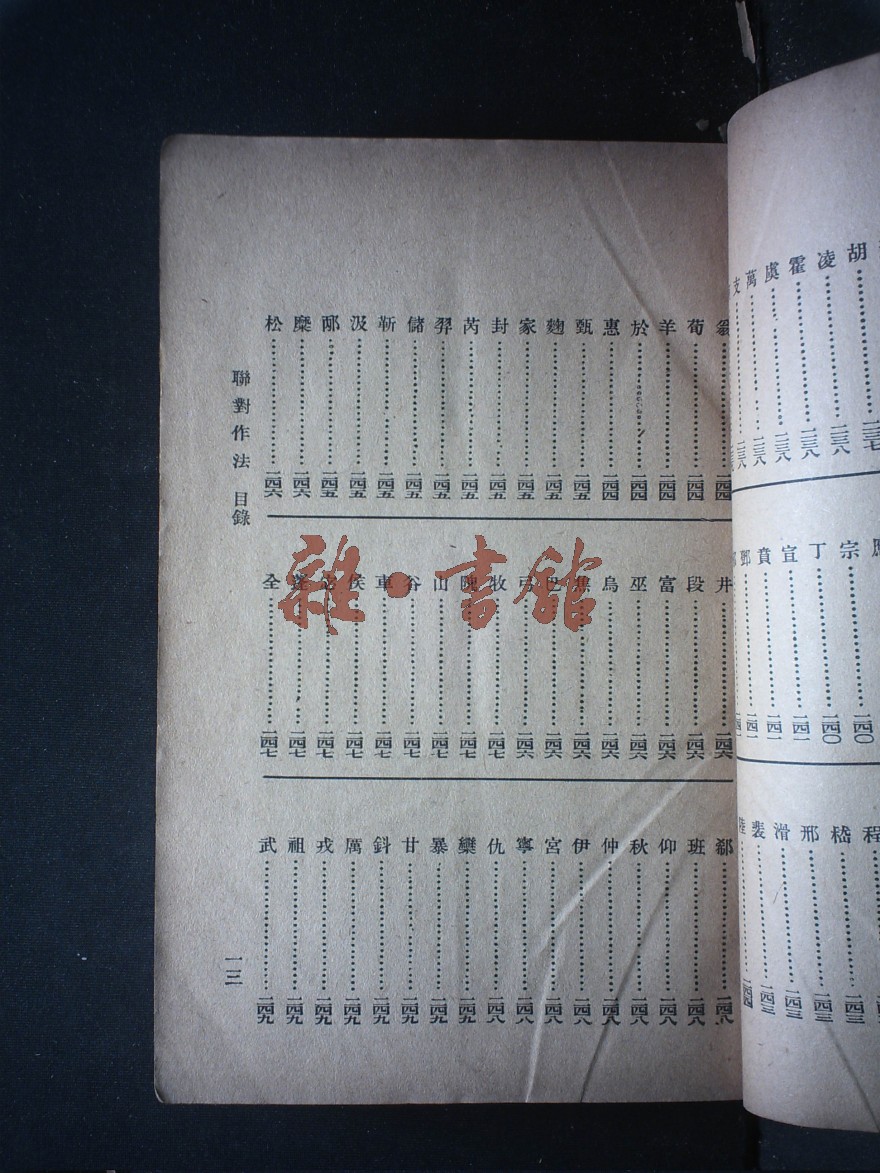 胡……一三七
凌……一三八
霍……一三八
虞……一三八
萬……一三八
支……一三八
宗……一四〇
丁……一四〇
宣……一四一
賁……一四一
鄧……一四一
程……一四三
嵇……一四三
邢……一四三
滑……一四三
裴……一四三
陸……一四四
翁……一四四
荀……一四四
羊……一四四
於……一四四
惠……一四四
甄……一四五
麴……一四五
家……一四五
封……一四五
芮……一四五
羿……一四五
儲……一四五
靳……一四五
汲……一四五
邴……一四五
糜……一四六
松……一四六
井……一四六
段……一四六
富……一四六
巫……一四六
烏……一四六
焦……一四六
巴……一四六
弓……一四六
牧……一四七
隗……一四七
山……一四七
谷……一四七
車……一四七
侯……一四七
宓……一四七
蓬……一四七
全……一四七
郗……一四八
班……一四八
仰……一四八
秋……一四八
仲……一四八
伊……一四八
宮……一四八
寧……一四八
仇……一四八
欒……一四九
暴……一四九
甘……一四九
鈄……一四九
厲……一四九
戎……一四九
祖……一四九
武……一四九
聯對作法 目錄
一三
雜·書館